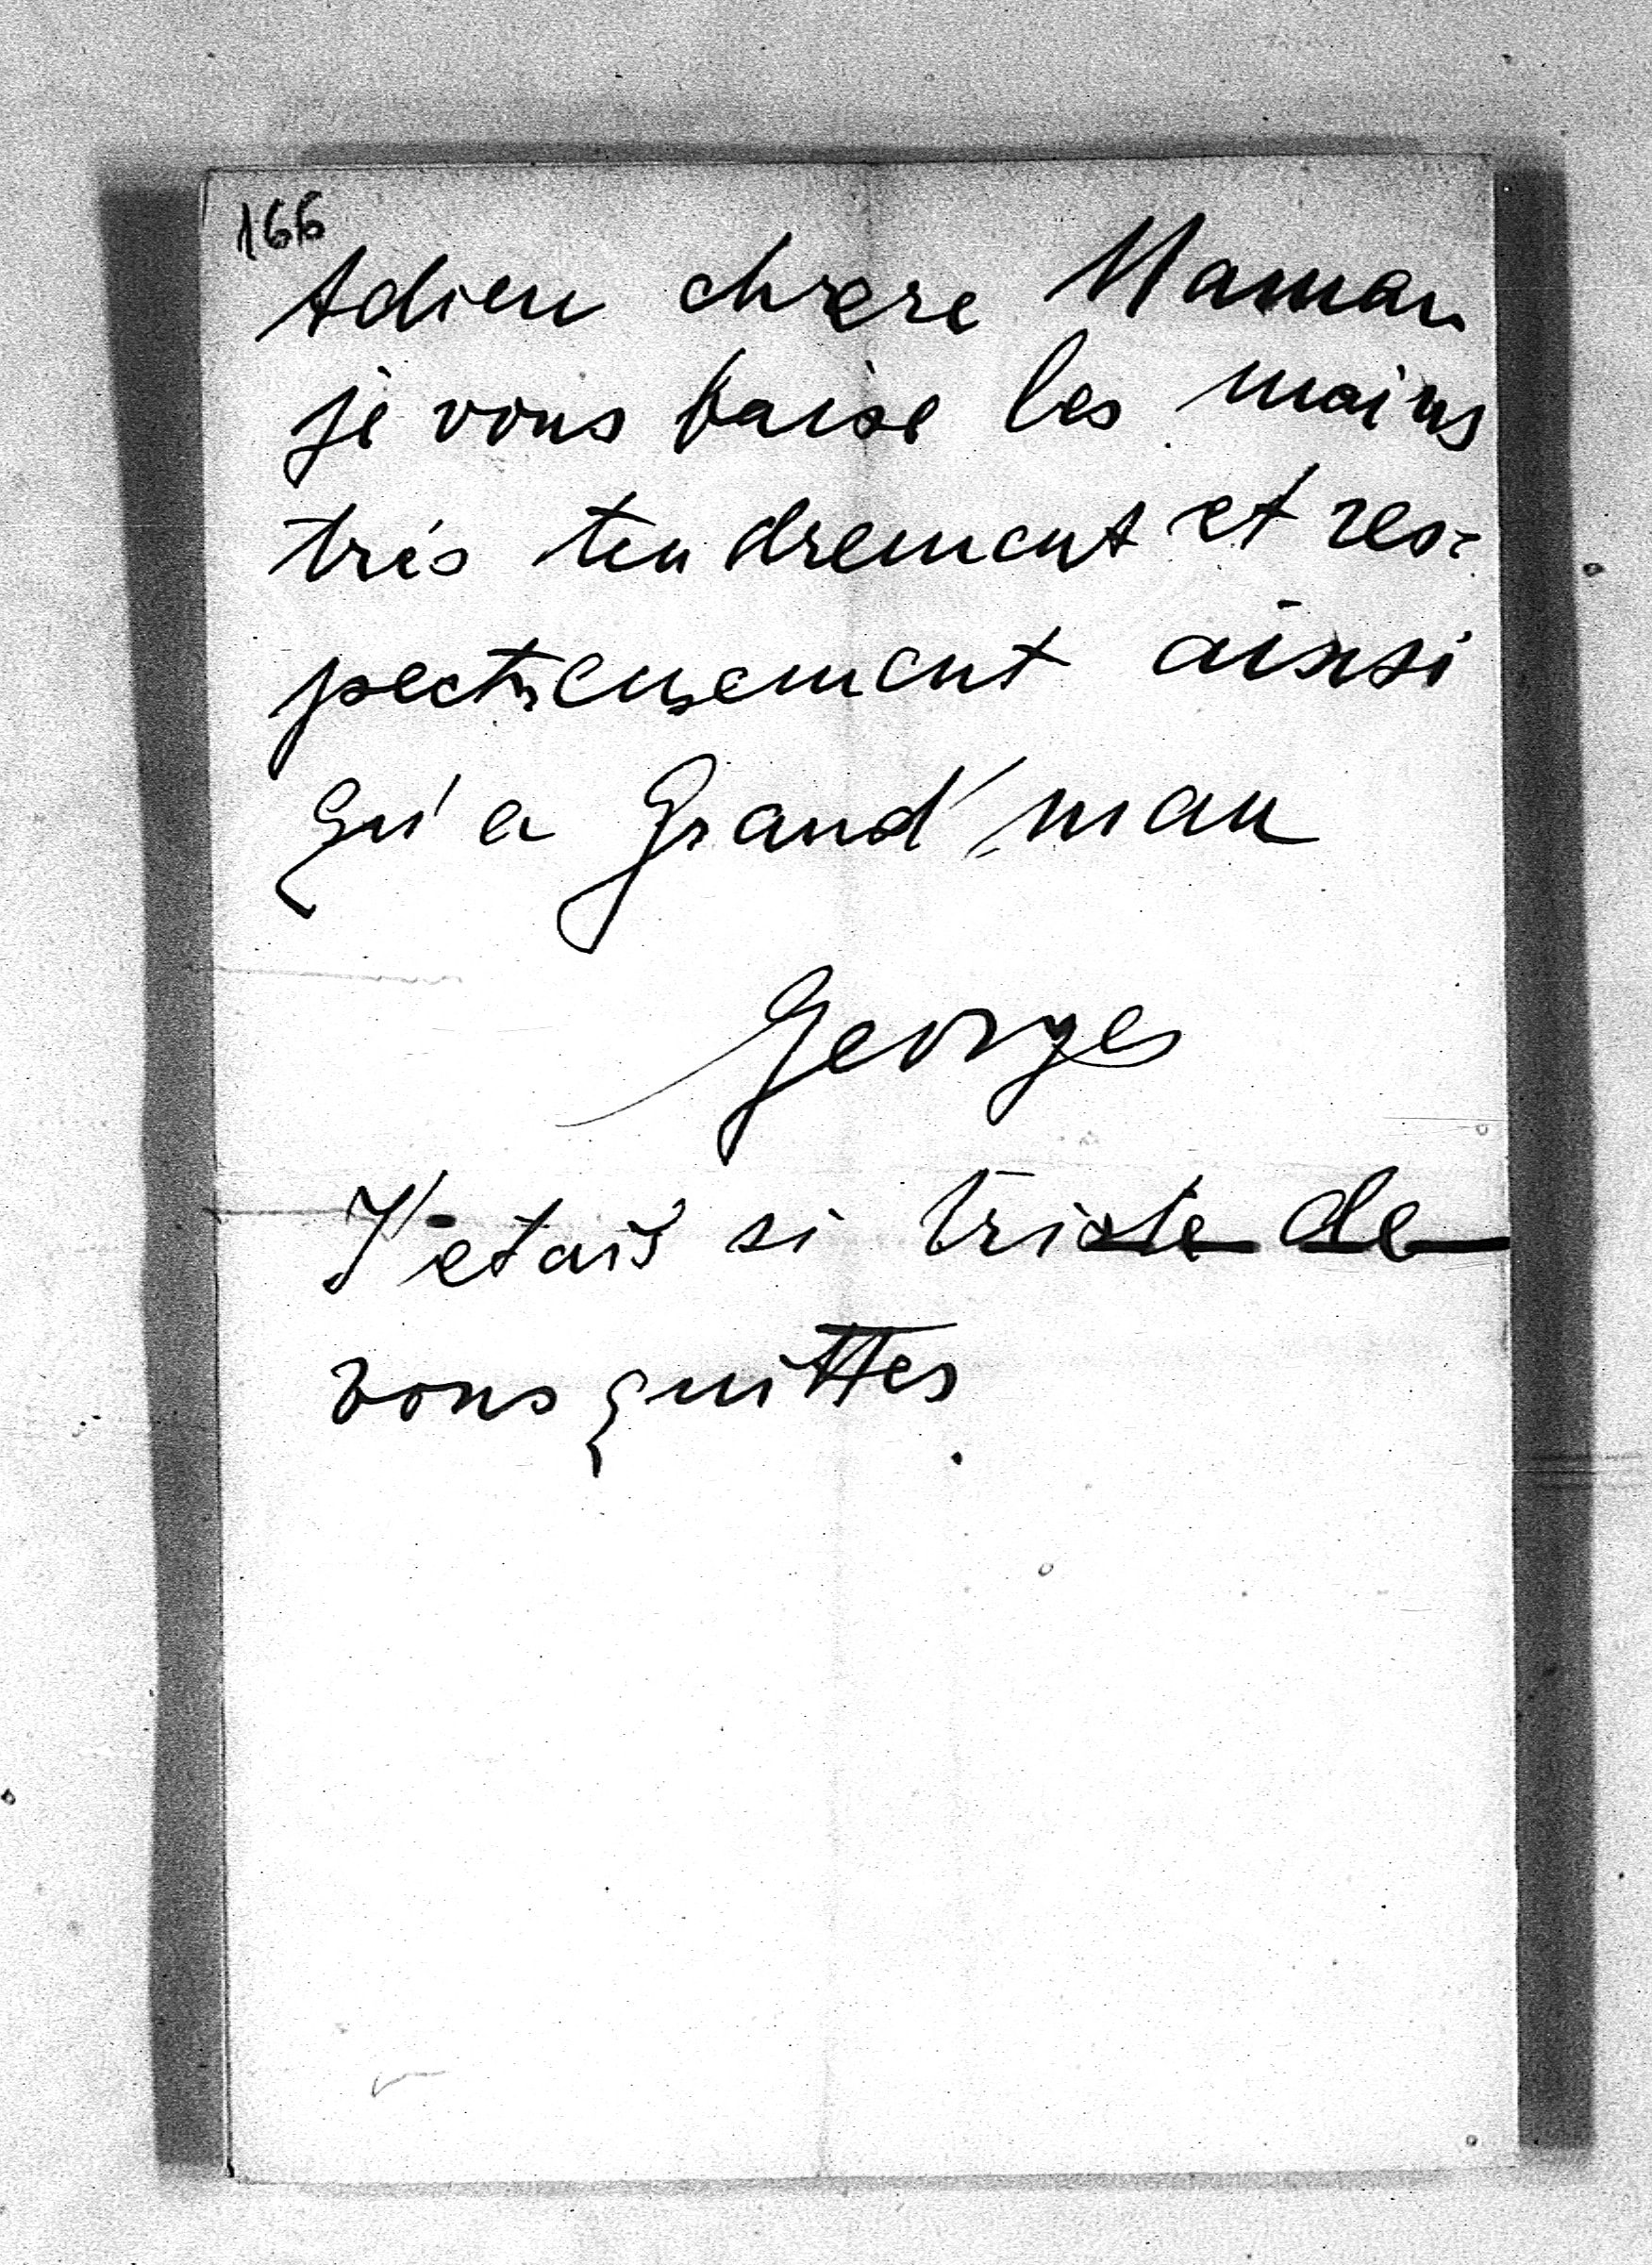 166
Adieu chrere Maman
je vous baise les mains
trés tendrement et res-
pectueusement ainsi
qu'a Grand'man
Georges
J'etais si triste de
vous quitter.